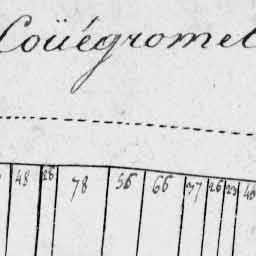 Coüégromel
48 28 78 56 66 37 26 23 40